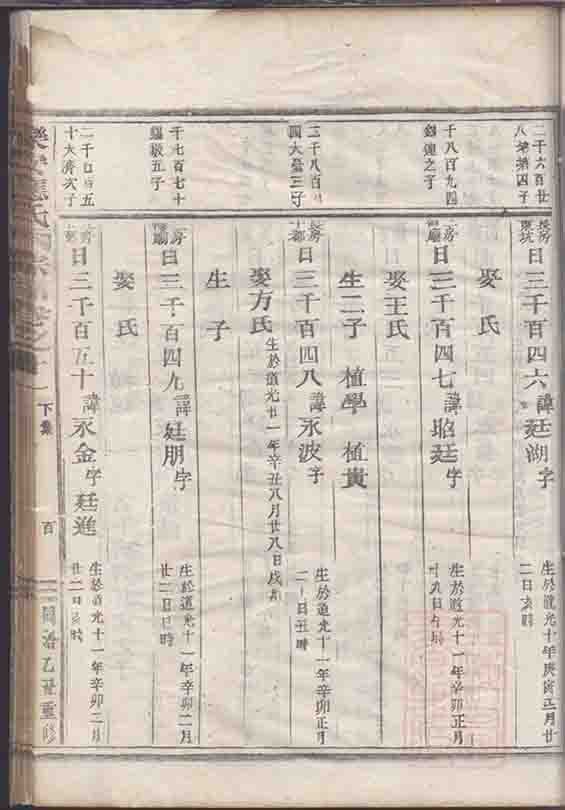 二千六百廿
八 第四子
房
日三千百四六諱廷湖字
生於道光十年庚寅正月廿
二日亥時
娶氏
千八百九四
之子
房
日三千百四七諱 廷字
生於道光十一年辛卯正月
時
娶王氏
生二子 植學 植貴
二千八百
四大 三子
房
都
日三千百四八諱永波字
生於道光十一年辛卯正月
二 日丑時
娶方氏
生於道光廿一年辛丑八月廿八日戌
生子
千七百七十
五子
房
廟
日三千百四九諱廷朋字
生於道光十一年辛卯二月
廿二日 時
娶氏
二千 百五
十大濟次子
房
日三千百五十諱永金字廷進
生於道光十一年辛卯二月
廿二日 時
下集
百
同治乙丑重修